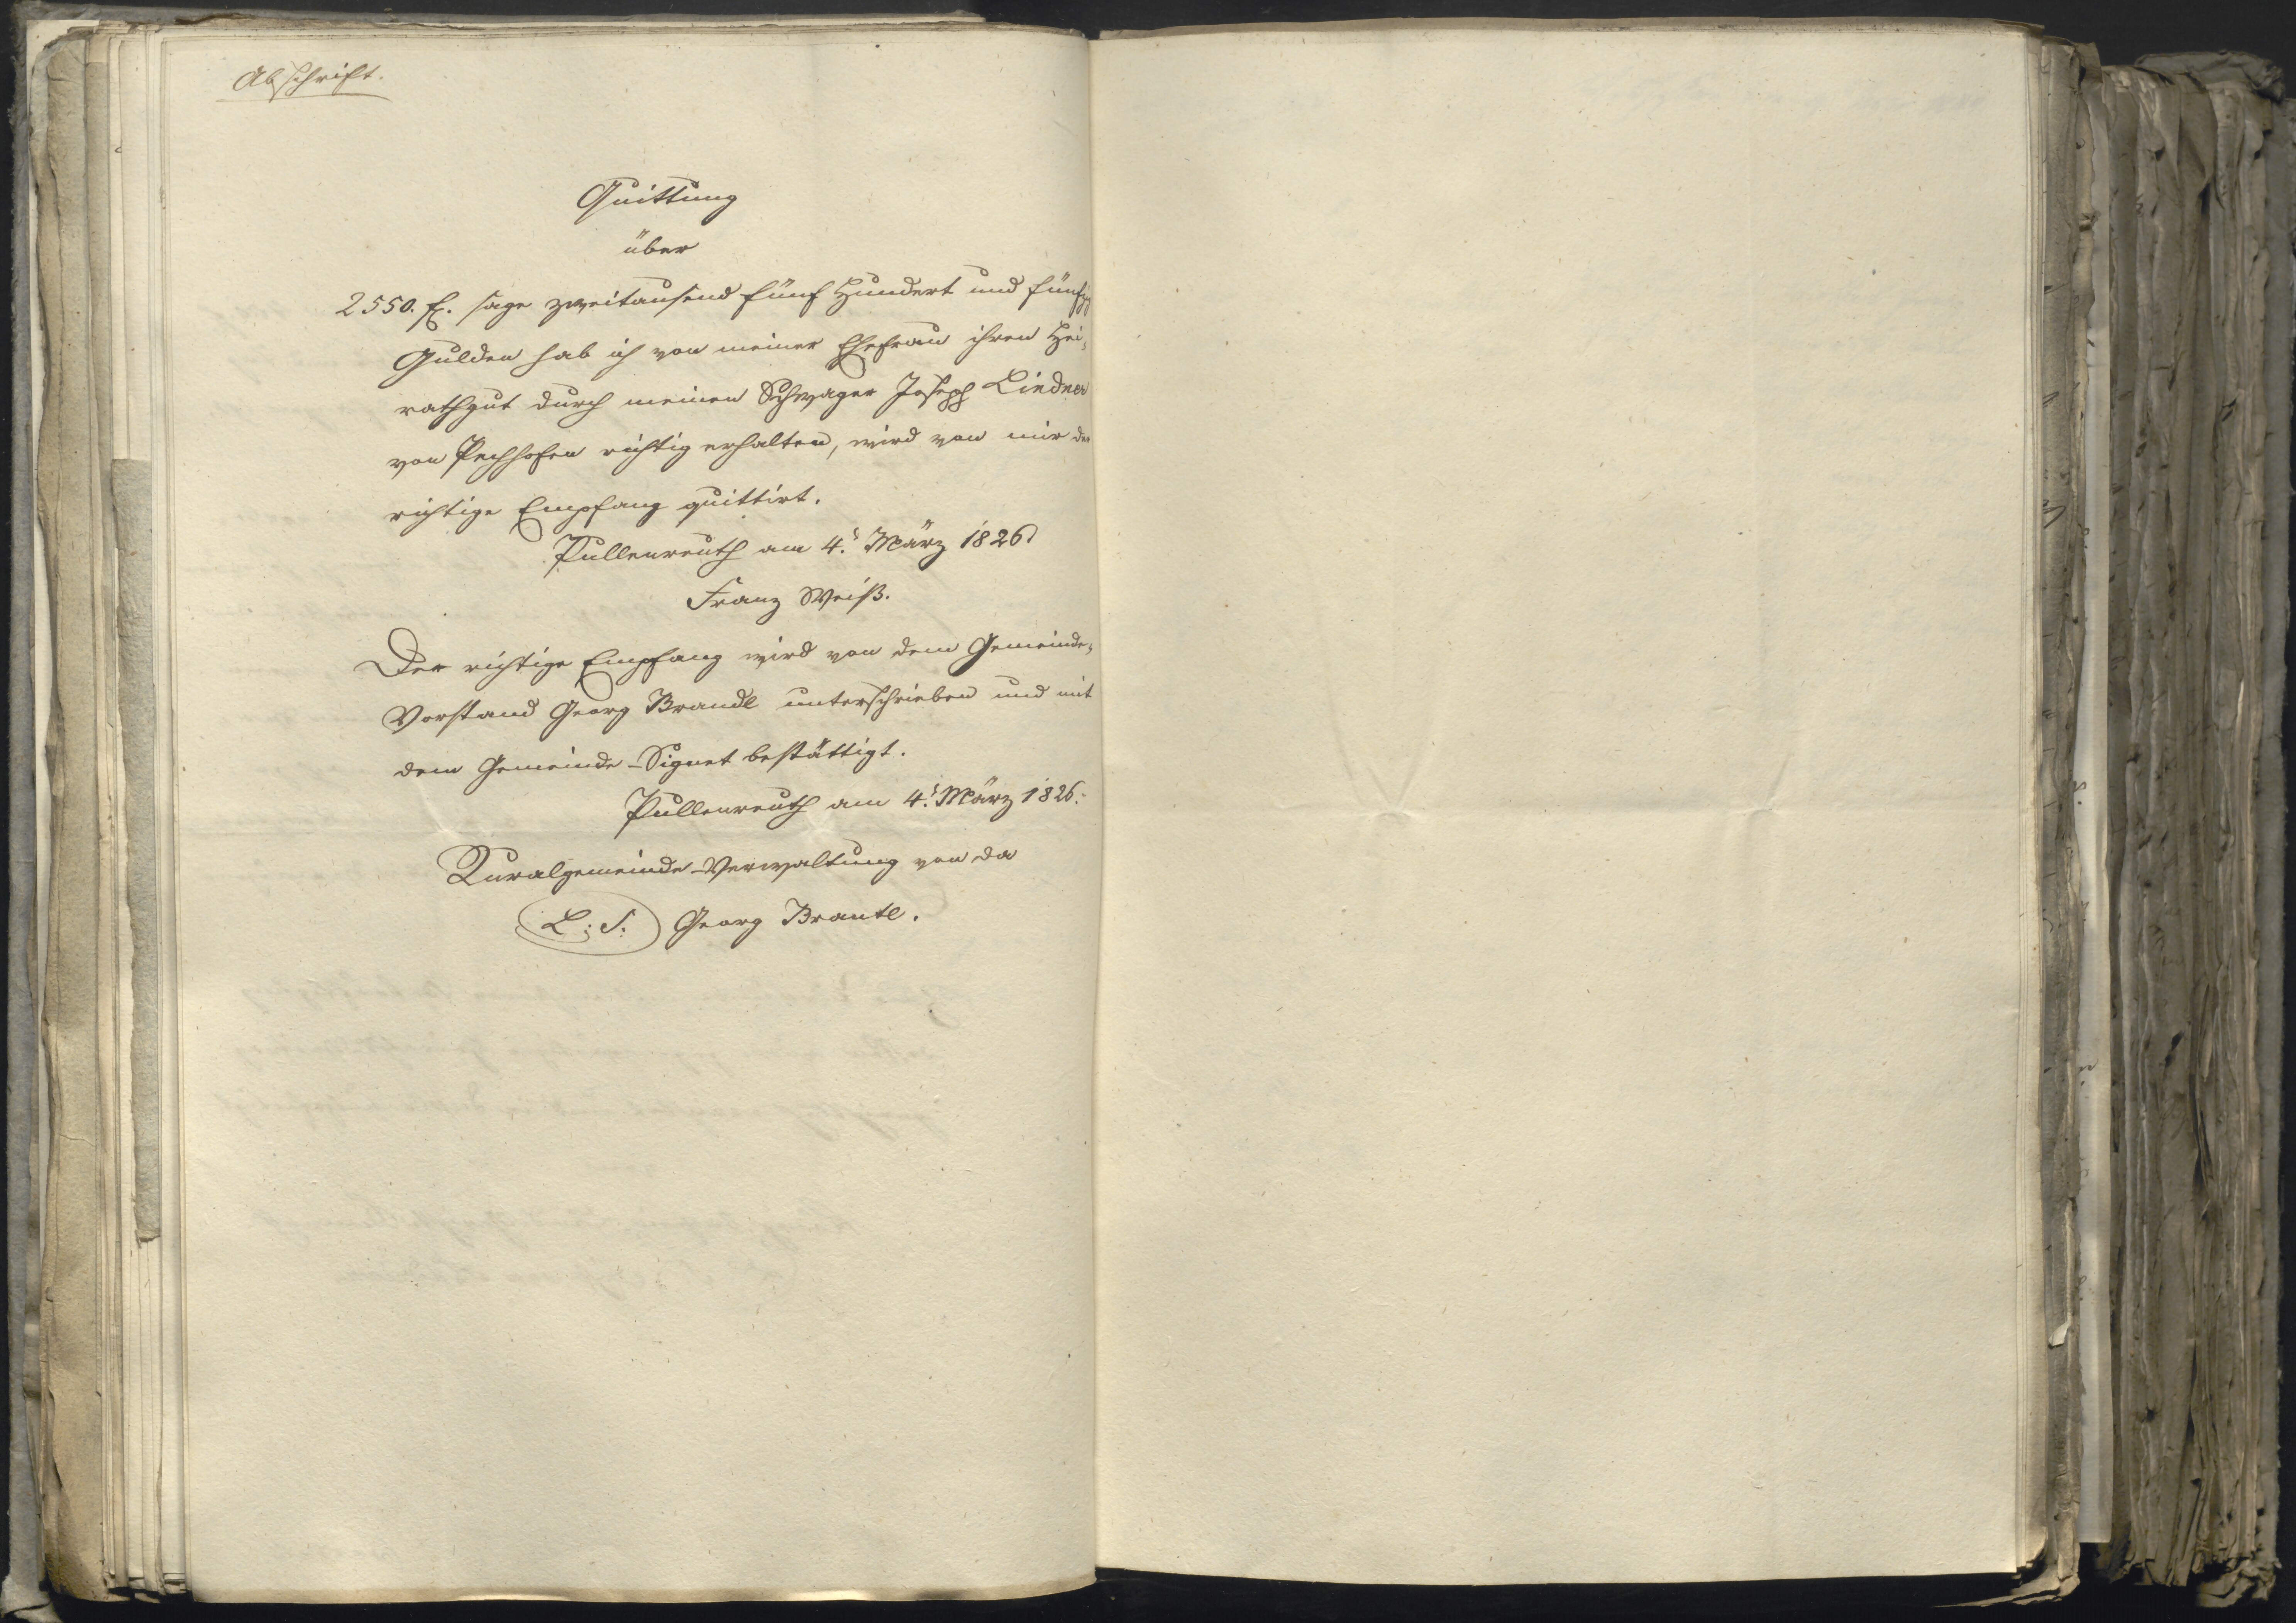 Abschrift.
Quittung
über
2550. fl. sage zweitausend fünf Hundert und fünfzig
Gulden hab ich von meiner Ehefrau ihren Hei-
rathgut durch meinen Schwager Joseph Lindner
von Pechhofen richtig erhalten, wird von mir der
richtige Empfang quittirt.
Pullenreuth am 4.t März 1826
Franz Weiß.
Der richtige Empfang wird von dem Gemeinde-
Vorstand Georg Brandl unterschrieben und mit
dem Gemeinde-Signet bestättigt.
Pullenreuth am 4.t März 1826.
Ruralgemeinde-Verwaltung von da
L. S. Georg Brantl.